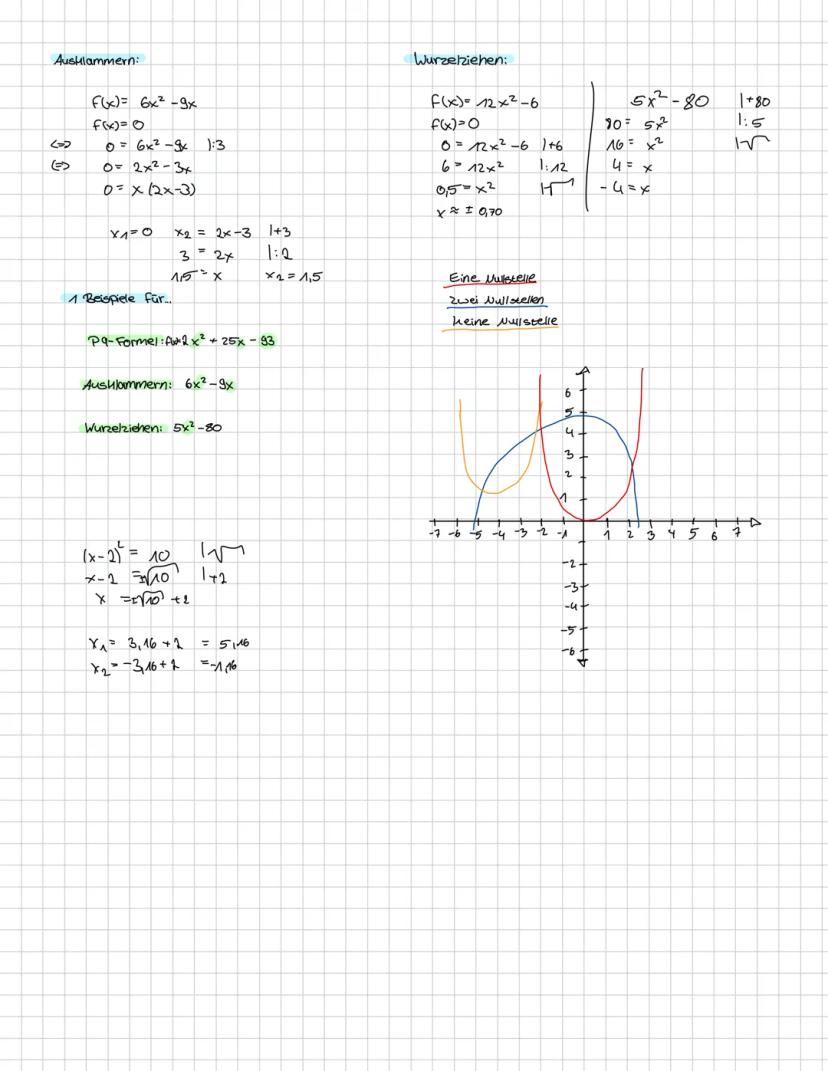 Ausklammern:
f(x)= 6x² -9x
f(x)=0
<=> 0 = 6x² -9x |:3
<=> 0 = 2x² -3x
0 = x (2x-3)
x1=0 x2 = 2x-3 |+3
3 = 2x |:2
1,5 = x x2 = 1,5
1 Beispiele für...
Pq-Formel: 2x² + 25x - 93
Ausklammern: 6x² -9x
Wurzelziehen: 5x² -80
(x-2)² = 10 |√
x-2 = ±√10 |+2
x = ±√10 +2
x1 = 3,16 +2 = 5,16
x2 = -3,16 +2 = -1,16
Wurzelziehen:
f(x)= 12x² -6
f(x)=0
0 = 12x² -6 |+6
6 = 12x² |:12
0,5 = x² |√
x ≈ ± 0,70
5x² -80 |+80
80 = 5x² |:5
16 = x² |√
4 = x
-4 = x
Eine Nullstelle
zwei Nullstellen
keine Nullstelle
6
5
4
3
2
1
-7 -6 -5 -4 -3 -2 -1 1 2 3 4 5 6 7
-2
-3
-4
-5
-6